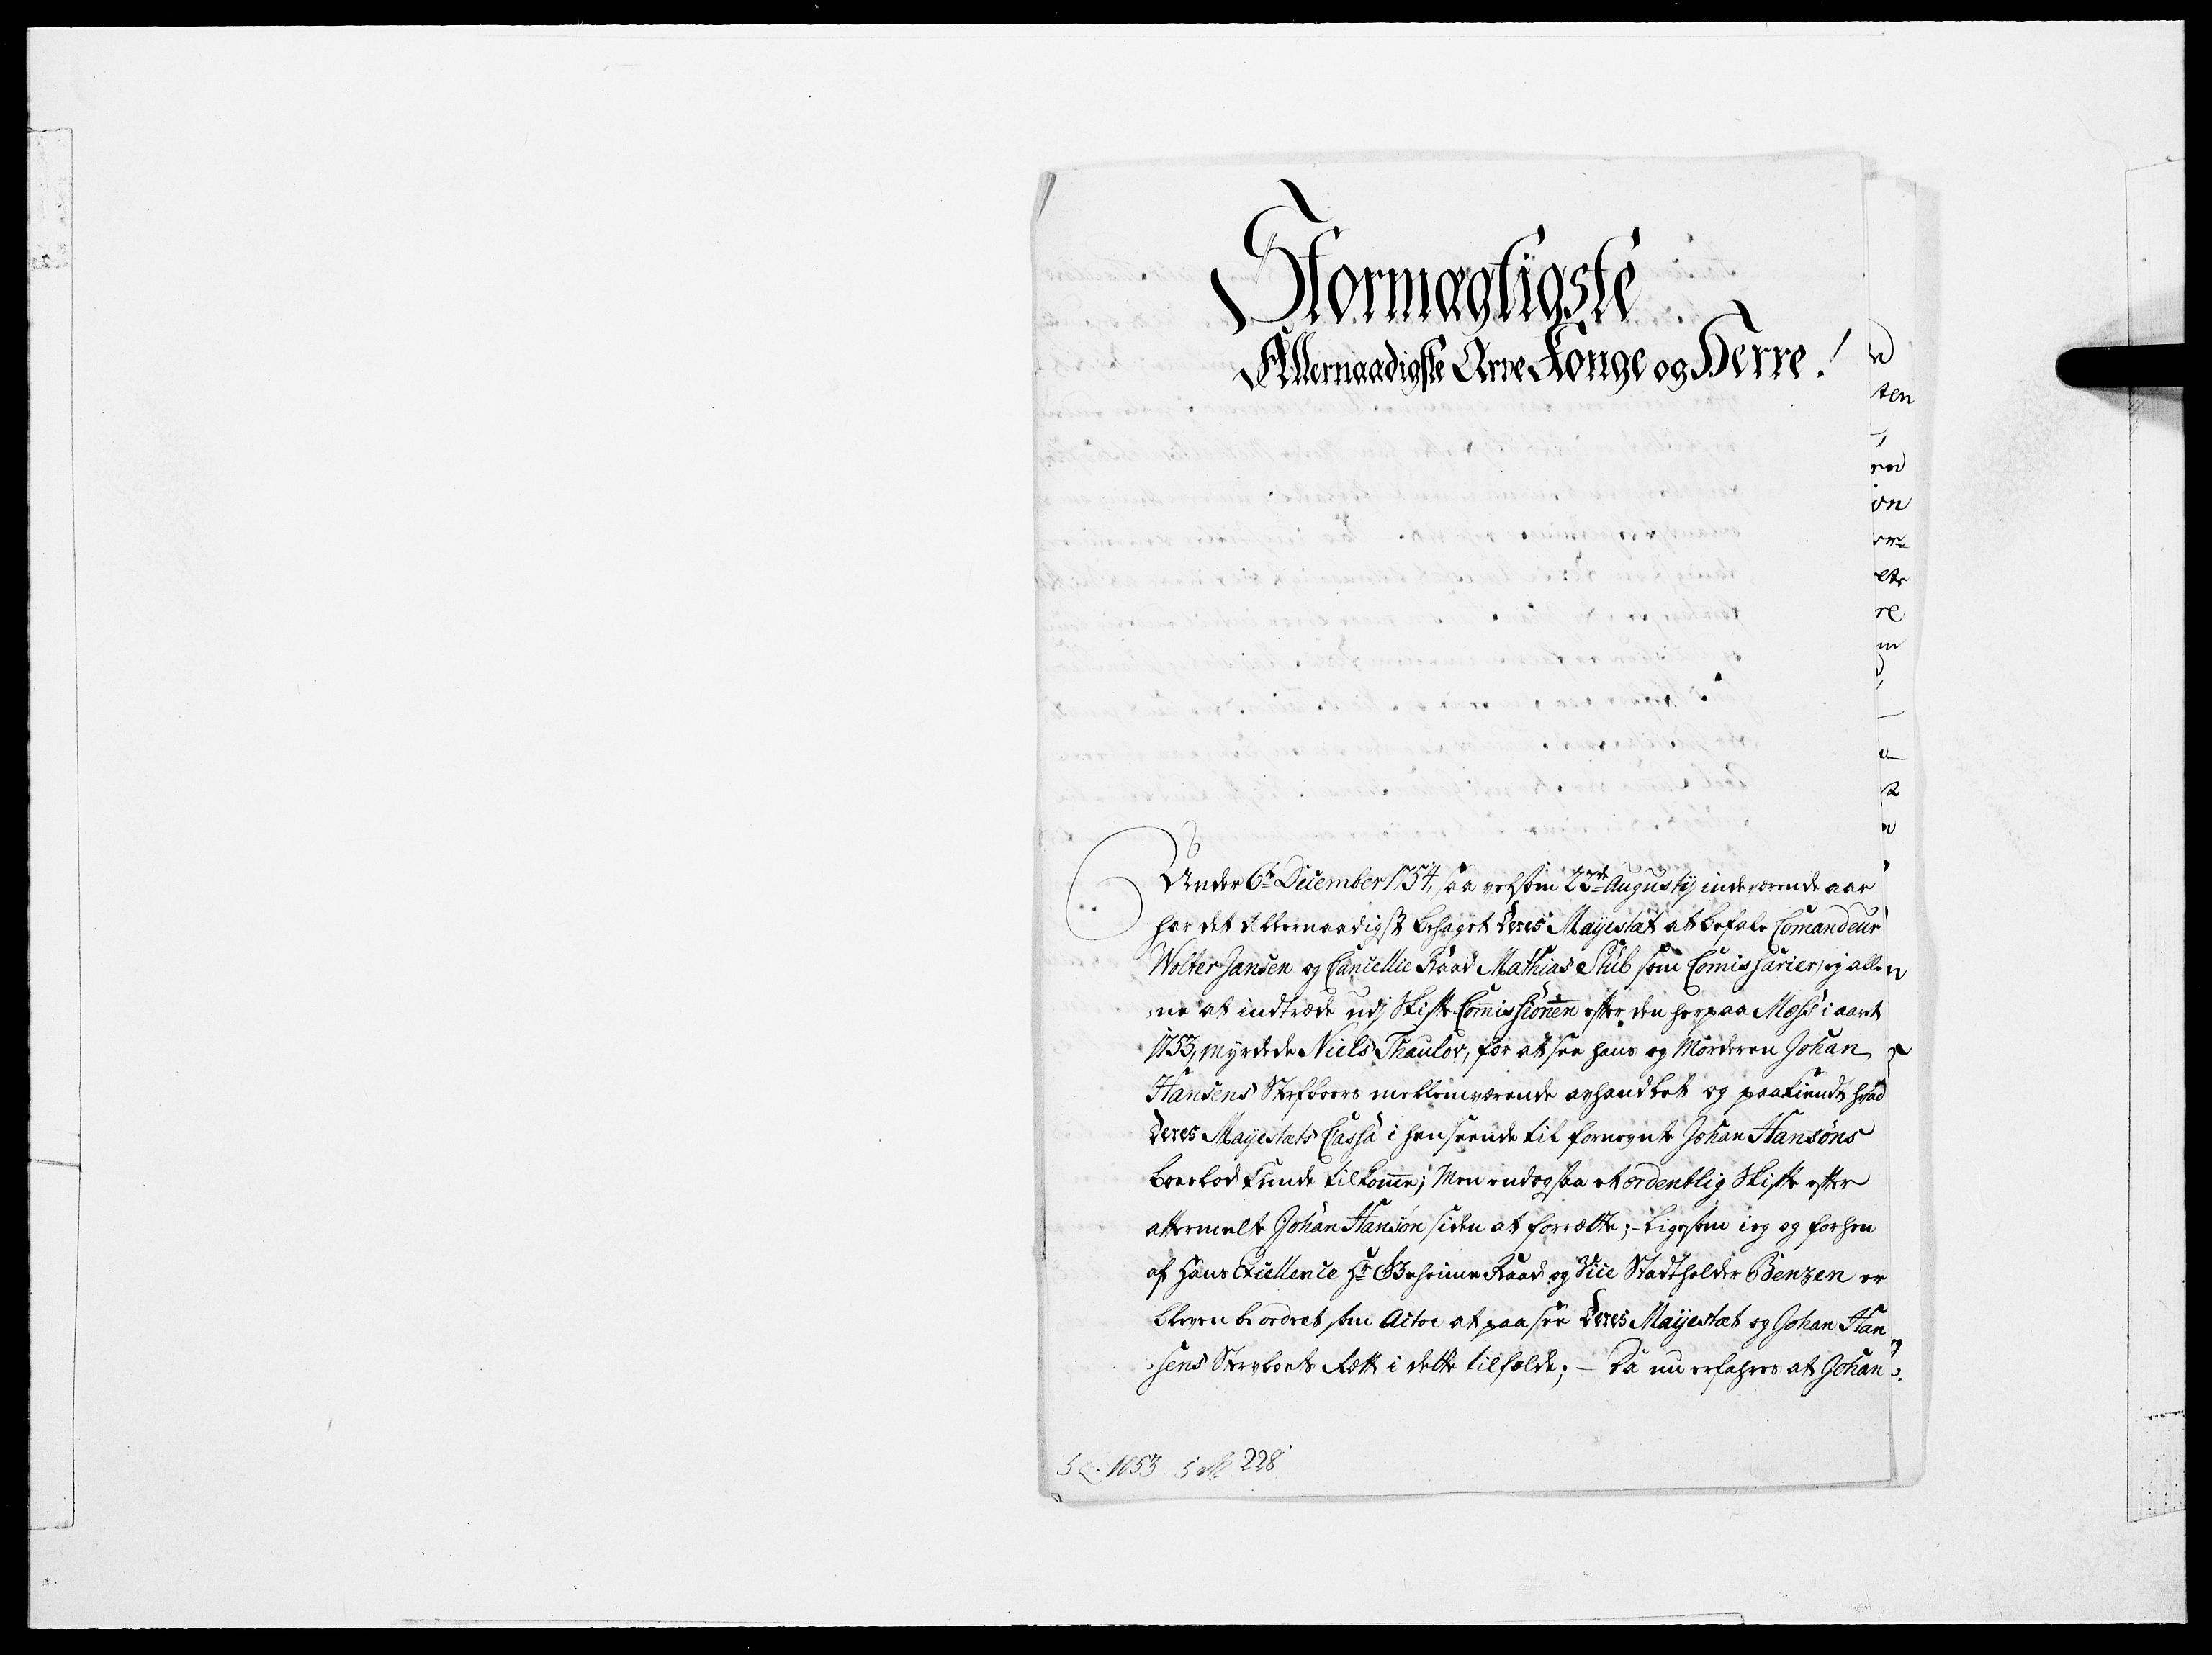 Stormægtigste
Allernaadigste Arve Konge og Herre!
Under 6te December 1754, saa velsom 23de Augustij indeværende aar
har det Allernaadigst behaget Deres Mayestæt at befale Comandeur
Wolter Jansen og Cancellie Raad Mathias Stub som Comissarier, ej alle
ne at indtræde udj Skifte Commissionen efter den her paa Moss i aaret
1753, myrdede Niels Thaulov, for at see hans og Morderen Johan
Hansens Sterfboers mellemværende avhandlet og paakiendt hvad
Deres Mayestæts Cassa i henseende til fornevnte Johan Hansøns
boeslod kunde tilkomme; Men endogsaa et ordentlig Skifte efter
attermelte Johan Hansøn siden at forrætte; - Ligesom ieg og forhen
af Hans Excellence Hr Geheime Raad og Vice Stadtholder Benzen er
bleven beordret som Actor at paasee Deres Mayestæt og Johan Han
sens Stervboets Rett i dette tilfælde; - Da nu erfahres at Johan
1053 228